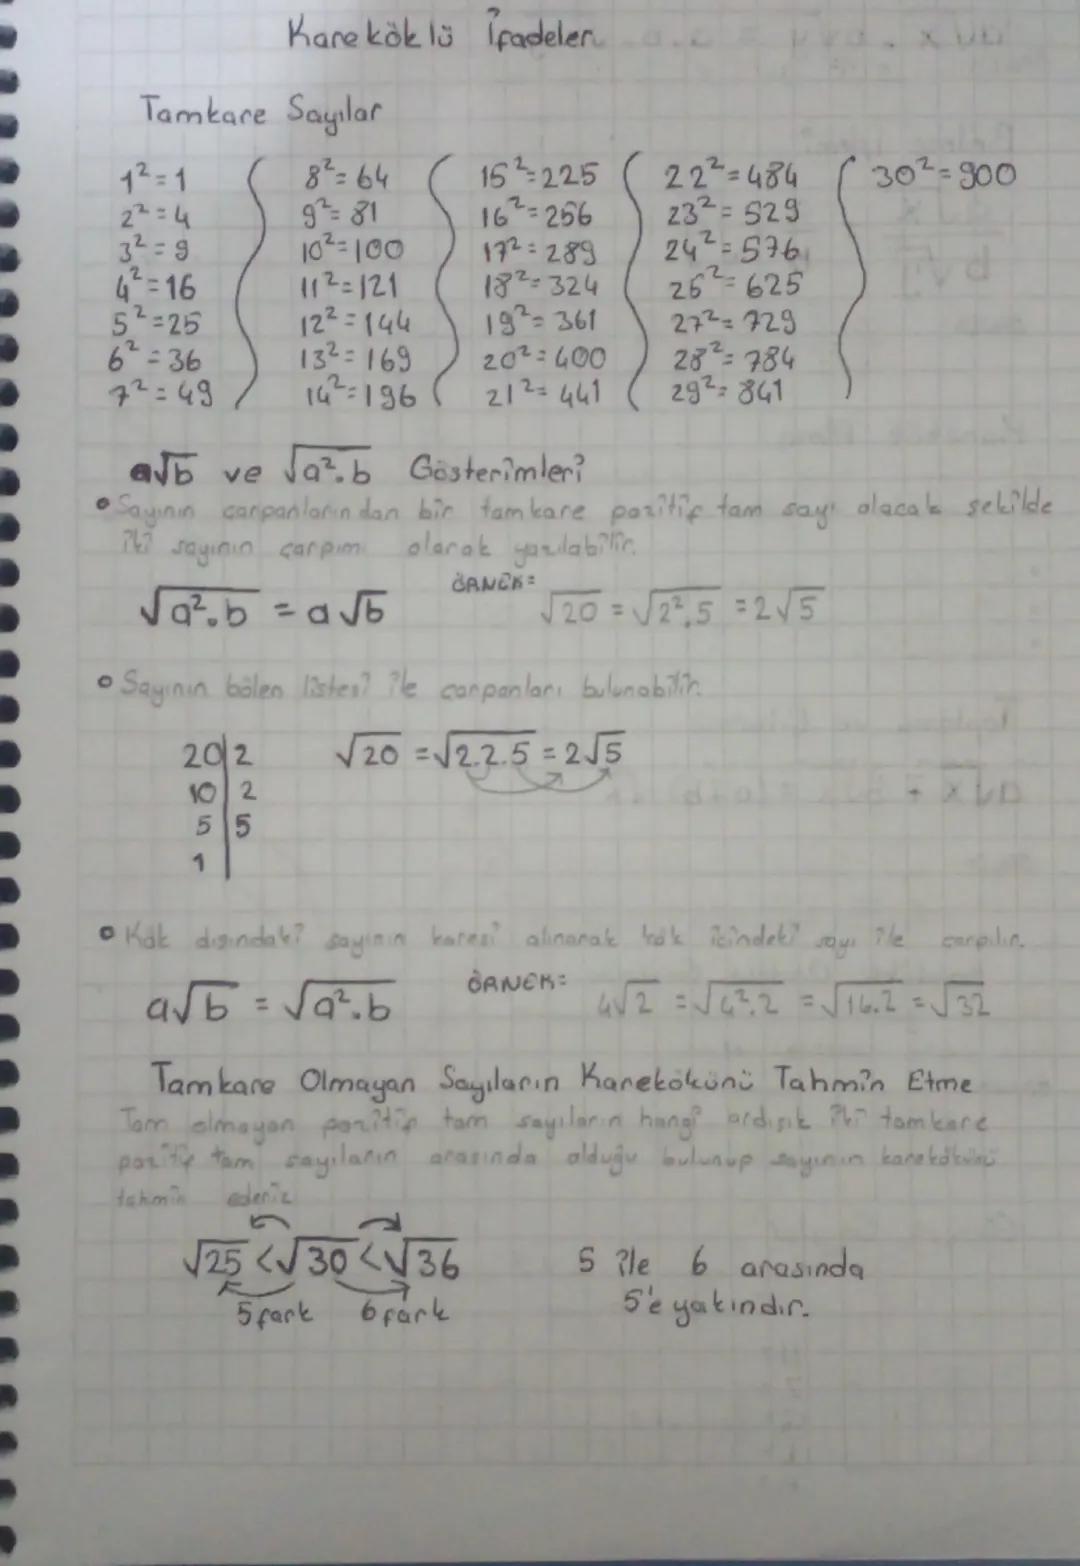 Kareköklü İfadeler
Tamkare Sayılar
1²=1
2²=4
3²=9
4²=16
5²=25
6²=36
7²=49
8²=64
9²=81
10²=100
11²=121
12²=144
13²=169
14²=196
15²=225
16²=256
17²=289
18²=324
19²=361
20²=400
21²=441
22²=484
23²=529
24²=576
25²=625
27²=729
28²=784
29²=841
30²=900
a√b ve √a².b Gösterimleri
• Sayının çarpanlarından bir tamkare pozitif tam sayı olacak şekilde
iki sayının çarpımı olarak yazılabilir.
√a².b = a√b ÖRNEK= √20 = √2².5 = 2√5
• Sayının bölen listesi ile çarpanları bulunabilir.
20|2 √20 = √2.2.5 = 2√5
10|2
5|5
1|
• Kök dışındaki sayının karesi alınarak kök içindeki sayı ile çarpılır.
a√b = √a².b ÖRNEK= 4√2 = √4².2 = √16.2 = √32
Tamkare Olmayan Sayıların Karekökünü Tahmin Etme
Tam olmayan pozitif tam sayıların hangi ardışık iki tamkare
pozitif tam sayıların arasında olduğu bulunup sayının karekökünü
tahmin ederiz
√25 < √30 < √36 5 ile 6 arasında
5 fark 6 fark 5'e yakındır.